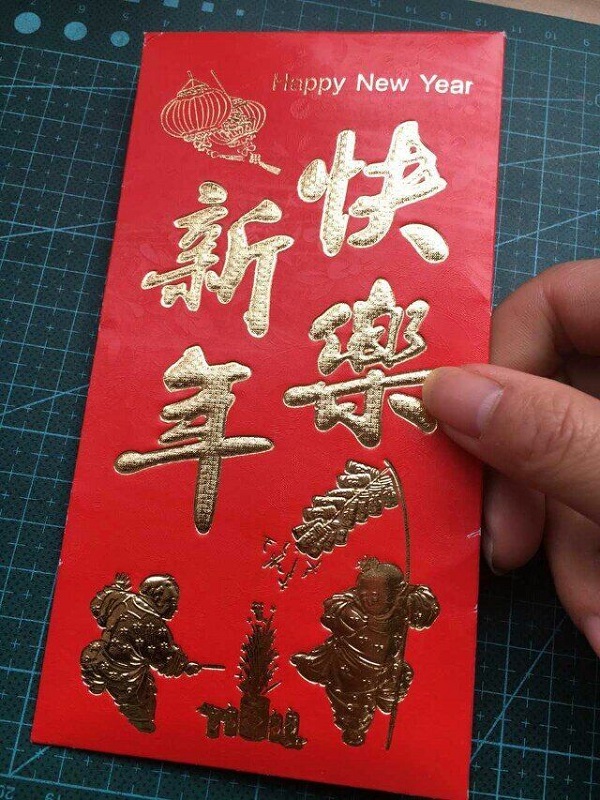 Happy New Year
快樂
新年